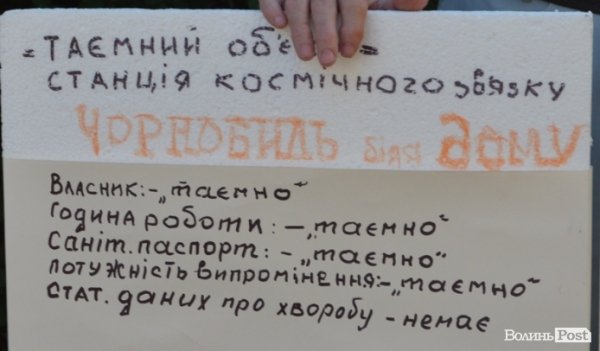 "ТАЄМНИЙ
СТАНЦІЯ КОСМІЧНОГО ЗВ'ЯЗКУ
ЧОРНОБИЛЬ біля ДОМУ
ВЛАСНИК:-„таємно"
Година роботи: –„таємно"
Саніт. паспорт: -„таємно"
потужність випромінення:-„таємно"
стат. даних про хворобу - немає
Волинь Post